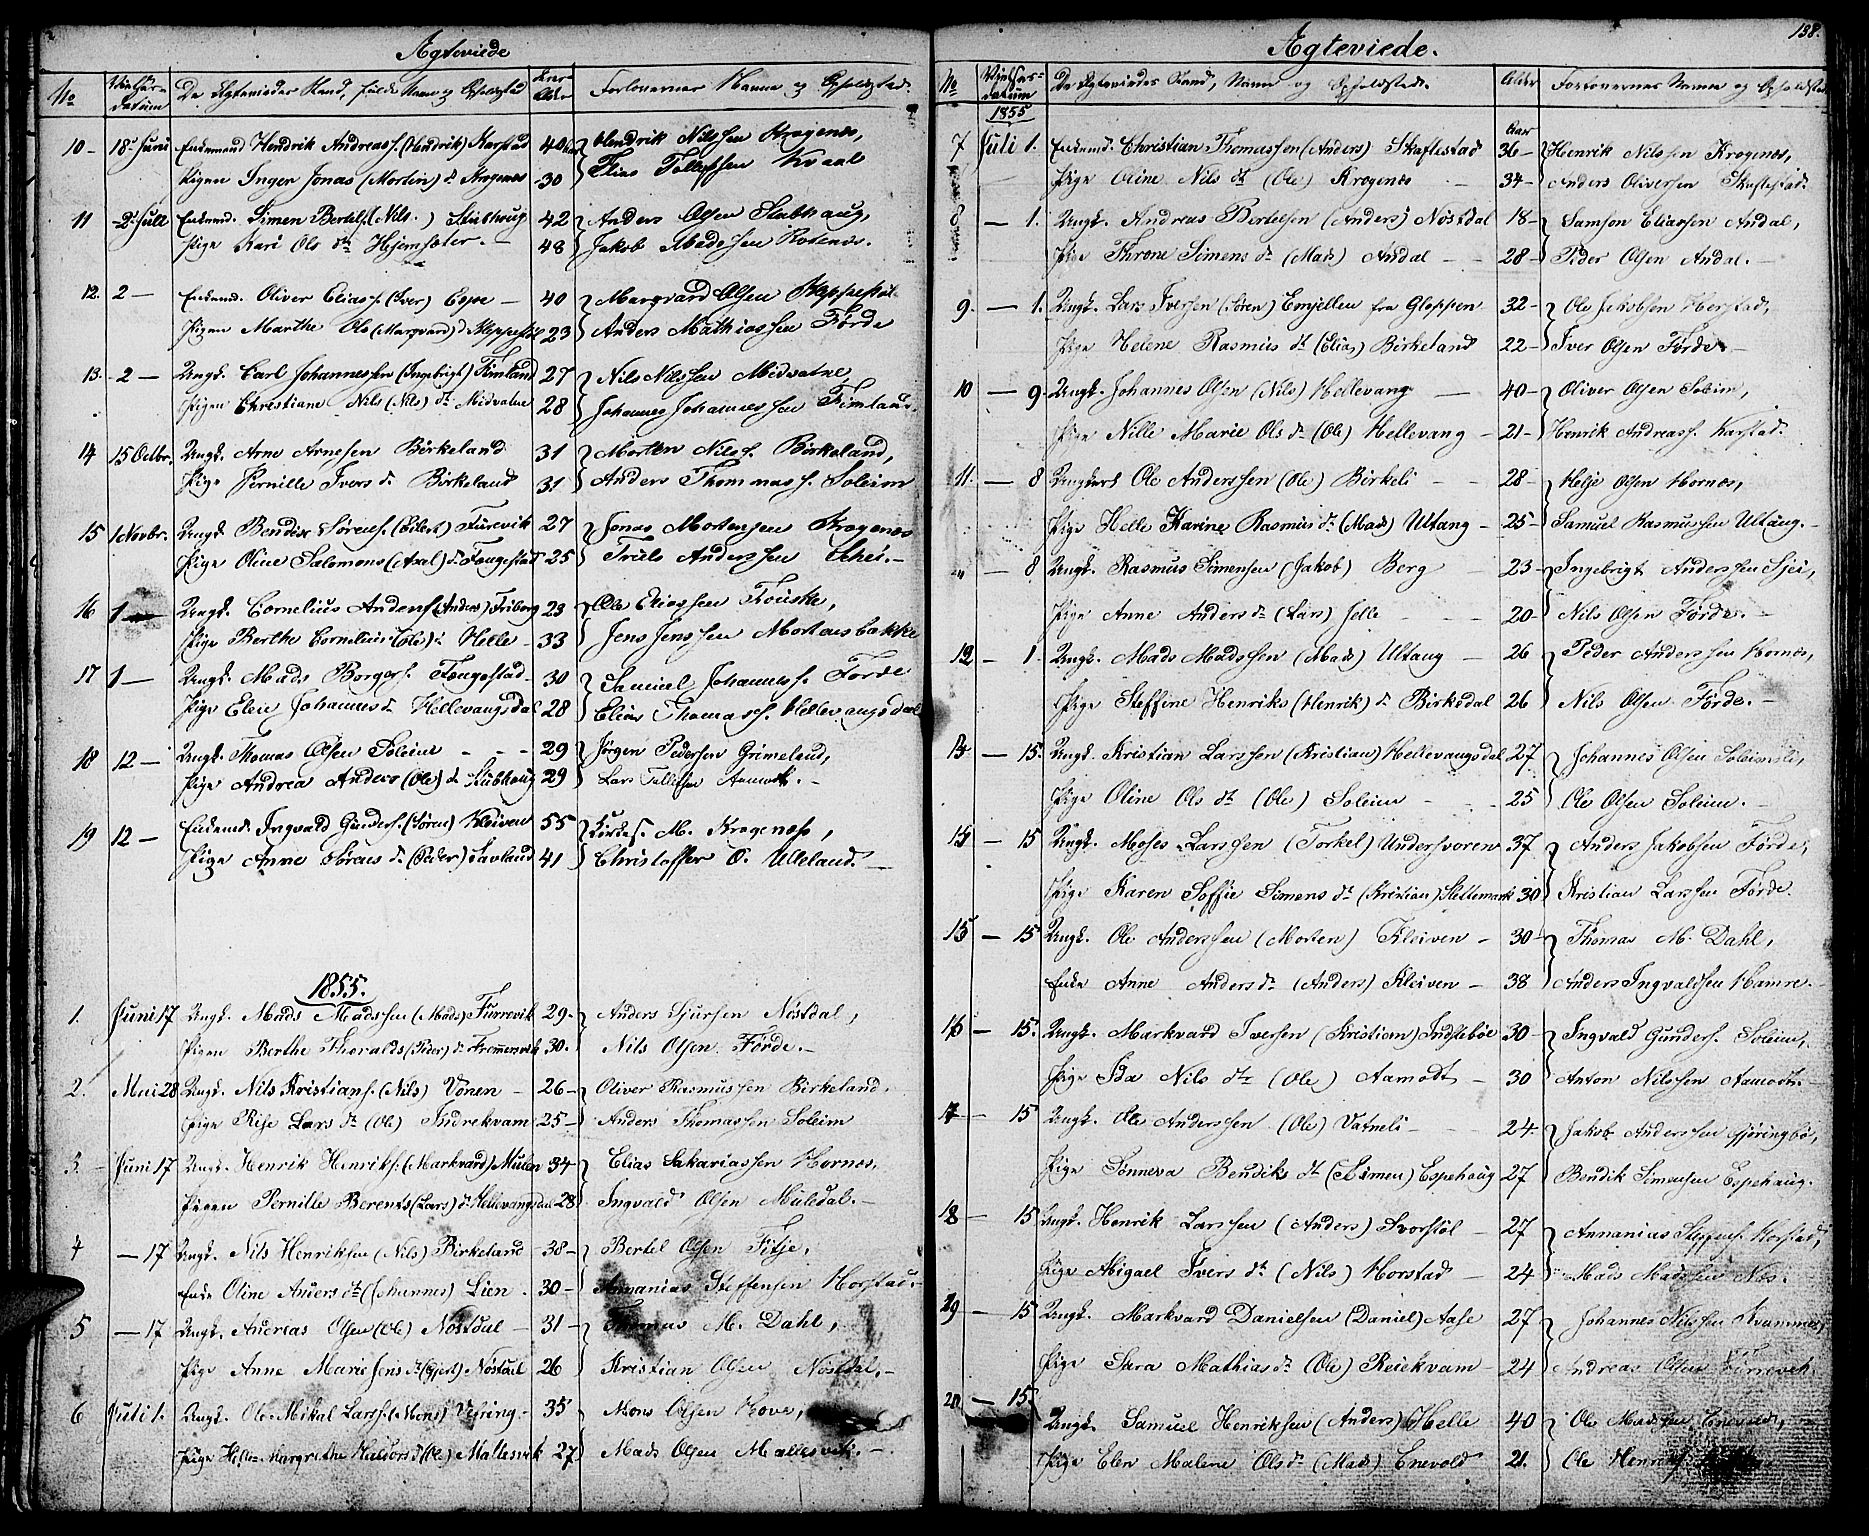 Agteviede
No Vielses-datum De Agtevieder Stand, fulde Navn og Opholdsted Alder Forlovernes Navne og Opholdsted.
10 - 18 Juni Enkemand Hendrik Andreass. (Hendrik) Karstad 40 Hendrik Nilssen Krogenæs,
Pigen Inger Jonas (Mortin) dr Krogenæs 30 Elias Tollefsen Kvaal
11 - 2 Juli Enkemd. Simen Bertels. (Nils) Stubhaug 42 Anders Olsen Stubhaug,
Pige Kari Ols dtr Hjemsæter. - 48 Jakob Madssen Rotenæs.
12. 2 - Enkemd. Oliver Eliass. (Iver) Espe - 40 Marqvard Olsen Kleppestøl
Pigen Marthe Ols (Marqvard) d Kleppestøl 23 Anders Mathiassen Förde
13. - 2 - Ungk. Carl Johannessen (Ingebrigt) Fimland 27 Nils Nilssen Midvatne,
Pigen Christiane Nils (Nils) dr Midvatne 28 Johannes Johannessen Fimland.
14 15 Octbr. Ungk. Arne Arnesen Birkeland 31 Morten Nilss. Birkeland,
Pige Pernille Ivers dr Birkeland 31 Anders Thommass. Soleim
15 1 Novbr. Ungk. Bendix Sörens. (Eilert) Furevik 27 Jonas Mortensen Krogenæs
Pige Oline Salomons (Axel) dr Fougestad 25 Truls Anderssen Schei. -
16 1 - Ungk. Cornelius Anders. (Anders) Friborg 23 Ole Eliassen Fouske,
Pige Berthe Cornelius (Ole) d. Helle - 33 Jens Jenssen Mortensbakke
17 1 - Ungk. Mads Borgers. Fougestad - 30 Samuel Johanness. Förde
Pige Elen Johannes dr Hellevangsdal 28 Elias Thomass. Hellevangsdal
18 12 - Ungk. Thomas Olsen Soleim - - - 29 Jørgen Pedersen Grimeland,
Pige Andrea Anders (Ole) dr Stubhaug 29 Lars Tollefsen Aamodt. -
19 12 - Enkemd. Ingvald Gunders. (Sören) Kleiven 55 Kirkes. M. Krogenæss,
Pige Anne Sörens dr (Peder) Savland 41 Christoffer O. Ulleland. -
1855.
1. Juni 17 Ungk. Mads Madssen (Mads) Furrevik 29 - Anders Sjursen Nöstdal,
Pigen Berthe Thoralds (Peder) dr Frommevik 30. Nils Olsen Förde. -
2. Mai 28 Ungk. Nils Kristians. (Nils) Vonen - 26 - Oliver Rasmussen Birkeland.
Pige Rise Lars dr (Ole) Indrekvam 25 - Anders Thomassen Soleim
3. - Juni 17 Ungk. Henrik Henriks. (Markvard) Mulen 34 Elias Sakariassen Hornæs,
Pigen Pernille Berents (Lars) dr Hellevangsdal 28 Ingvald Olsen Muldal. -
4 - 17 Ungk. Nils Henriksen (Nils) Birkeland 38 - Bertel Olsen Fitje,
Enke Oline Anders dtr (Johannes) Lien . 30 - Annanias Steffensen Horstad -
5 - 17 Ungk. Andreas Olsen (Ole) Nöstdal - 31 - Thomas M. Dahl,
Pige Anne Marie Jens d. (Gjert) Nöstdal 26 Kristian Olsen Nöstdal. -
6 Juli 1. Ungk. Ole Mikal Larss. (Mons) Vefring. - 35 Mons Olsen Hove,
Pige Helle Margrethe Haldors d (Ole) Mallesvik 27 Mads Olsen Mallesvik. -
Agteviede. 138.
No Vielses-datum De Agtevieders Stand, Navn og Opholdsted. Alder Forlovernes Navne og Opholdsted.
1855 Aar
7 Juli 1. Enkemd. Christian Thomassen (Anders) Skaftestad 36 - Henrik Nilssen Krogenæs,
Pige Oline Nils dtr (Ole) Krogenæs - 34 - Anders Oliversen Skaftestad.
8 - 1. Ungk. Andreas Bertelsen (Anders) Nöstdal 18 - Samson Eliassen Andal,
Pige Throne Simens dr (Mads) Andal - - 28 - Peder Olsen Andal. -
9. - 1. Ungk. Lars Iversen (Sören) Emjellen fra Gloppen 32 - Ole Jakobsen Horstad,
Pige Helene Rasmus dt (Elias) Birkeland 22 - Iver Olsen Förde -
10 - 9. Ungk. Johannes Olsen (Nils) Hellevang - 40 - Oliver Olsen Soleim,
Pige Nille Marie Ols dr (Ole) Hellevang - 21 - Henrik Andreass. Karstad.
11. - 8 Ungkarl Ole Anderssen (Ole) Birkeli - - 28 - Helje Olsen Hornæs,
Pige Helle Karine Rasmus dr (Mads) Ultang - 25 - Samuel Rasmussen Ultang. -
- 8 Ungk. Rasmus Simensen (Jakob) Berg - 23 - Ingebrigt Anderssen Sjei,
Pige Anne Anders dr (Lars) Helle - - - 20 - Nils Olsen Förde. -
12 - 1. Ungk. Mads Madssen (Mads) Ultang - 26 Peder Anderssen Hornæs,
Pige Steffine Henriks (Henrik) dr Birksdal 26 Nils Olsen Förde. -
- 15. Ungk. Kristian Larssen (Kristian) Hellevangsdal 27 Johannes Olsen Soleimsli,
Pige Oline Ols dtr (Ole) Soleim - - 25 Ole Olsen Soleim. -
- 15 Ungk. Moses Larssen (Torkel) Undersvoren 37 Anders Jakobsen Förde,
Pige Karen Soffie Simens dr (Kristian) Slettemark 30 Kristian Larssen Förde.
15 - 15 Ungk. Ole Anderssen (Morten) Kleiven - 30 - Thomas M. Dahl,
Enke Anne Anders dr (Anders) Kleiven - 38 Anders Ingvaldsen Hamre. -
16 - 15. Ungk. Markvard Iversen (Kristian) Indsteböe 30 - Ingvald Gunders. Soleim,
Pige Ida Nils dtr (Ole) Aamodt - 30 Anton Nilssen Aamodt. -
17 - 15 Ungk. Ole Anderssen (Ole) Vatneli - - 24. Jakob Anderssen Gjöringbö,
Pige Sönneva Bendiks dtr (Simen) Espehaug 27 Bendik Simensen Espehaug.
18 - 15 Ungk. Henrik Larssen (Anders) Svorstöl - 27 Annanias Steffens. Horstad,
Pige Abigael Ivers dtr (Nils) Horstad - 24 Mads Madssen Næs.
- 15 Ungk. Markvard Danielsen (Daniel) Aase 27 Johannes Nilssen Kvammen,
Pige Sara Mathias dr (Ole) Reiekvam - 24 Andreas Olsen Furrevik
20 - 15.
Ungk. Samuel Henriksen (Anders) Helle 40 Ole Madssen Enevold,
Pige Elen Malene Ols dr (Mads) Enevold 21. Ole Henriks.